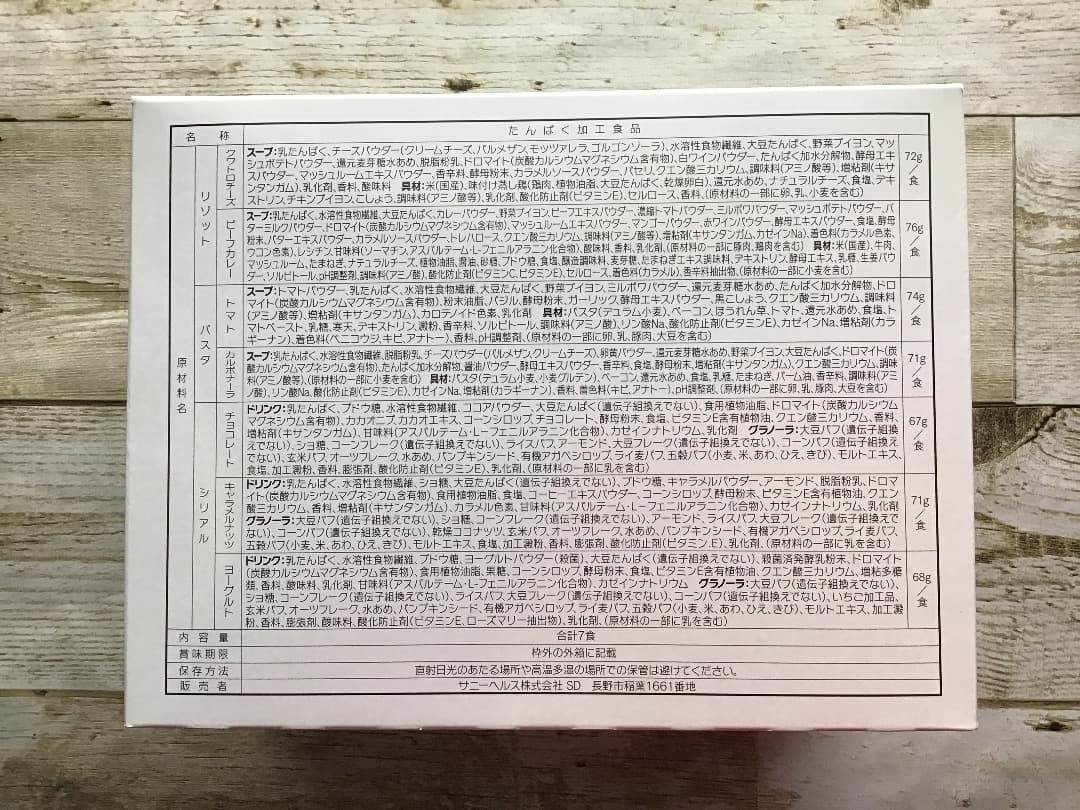 名称 たんぱく加工食品
原材料名
リゾット
クワトロチーズ
スープ:乳たんぱく、チーズパウダー(クリームチーズ、パルメザン、モッツアレラ、ゴルゴンゾーラ)、水溶性食物繊維、大豆たんぱく、野菜ブイヨン、マッ
シュポテトパウダー、還元麦芽糖水あめ、脱脂粉乳、ドロマイト(炭酸カルシウムマグネシウム含有物)、白ワインパウダー、たんぱく加水分解物、酵母エキ
スパウダー、マッシュルームエキスパウダー、香辛料、酵母粉末、カラメルソースパウダー、パセリ、クエン酸三カリウム、調味料(アミノ酸等)、増粘剤(キサ
ンタンガム)、乳化剤、香料、酸味料 具材:米(国産)、味付け蒸し鶏(鶏肉、植物油脂、大豆たんぱく、乾燥卵白)、還元水あめ、ナチュラルチーズ、食塩、デキ
ストリン、チキンブイヨン、こしょう、調味料(アミノ酸等)、乳化剤、酸化防止剤(ビタミンE)、セルロース、香料、(原材料の一部に卵、乳、小麦を含む)
72g/食
ビーフカレー
スープ:乳たんぱく、水溶性食物繊維、大豆たんぱく、カレーパウダー、野菜ブイヨン、ビーフエキスパウダー、濃縮トマトパウダー、ミルポワパウダー、マッシュポテトパウダー、バ
ターミルクパウダー、ドロマイト(炭酸カルシウムマグネシウム含有物)、マッシュルームエキスパウダー、マンゴーパウダー、赤ワインパウダー、酵母エキスパウダー、食塩、酵母
粉末、バターエキスパウダー、カラメルソースパウダー、トレハロース、クエン酸三カリウム、調味料(アミノ酸等)、増粘剤(キサンタンガム、カゼインNa)、着色料(カラメル色素、
ウコン色素)、レシチン、甘味料(ソーマチン、アスパルテーム・L-フェニルアラニン化合物)、酸味料、香料、乳化剤、(原材料の一部に豚肉、鶏肉を含む) 具材:米(国産)、牛肉、
マッシュルーム、たまねぎ、ナチュラルチーズ、植物油脂、醤油、砂糖、ブドウ糖、食塩、醸造調味料、麦芽糖、たまねぎエキス調味料、デキストリン、酵母エキス、乳糖、生姜パウ
ダー、ソルビトール、pH調整剤、調味料(アミノ酸)、酸化防止剤(ビタミンC、ビタミンE)、セルロース、着色料(カラメル)、香辛料抽出物、(原材料の一部に小麦を含む)
76g/食
パスタ
トマト
スープ:トマトパウダー、乳たんぱく、水溶性食物繊維、大豆たんぱく、野菜ブイヨン、ミルポワパウダー、還元麦芽糖水あめ、たんぱく加水分解物、ドロ
マイト(炭酸カルシウムマグネシウム含有物)、粉末油脂、バジル、酵母粉末、ガーリック、酵母エキスパウダー、黒こしょう、クエン酸三カリウム、調味料
(アミノ酸等)、増粘剤(キサンタンガム)、カロテノイド色素、乳化剤 具材:パスタ(デュラム小麦)、ベーコン、ほうれん草、トマト、還元水あめ、食塩、ト
マトペースト、乳糖、寒天、デキストリン、澱粉、香辛料、ソルビトール、調味料(アミノ酸)、リン酸Na、酸化防止剤(ビタミンE)、カゼインNa、増粘剤(カラ
ギーナン)、着色料(ベニコウジ、キビ、アナトー)、香料、pH調整剤、(原材料の一部に卵、乳、豚肉、大豆を含む)
74g/食
カルボナーラ
スープ:乳たんぱく、水溶性食物繊維、脱脂粉乳、チーズパウダー(パルメザン、クリームチーズ)、卵黄パウダー、還元麦芽糖水あめ、野菜ブイヨン、大豆たんぱく、ドロマイト(炭
酸カルシウムマグネシウム含有物)、たんぱく加水分解物、醤油パウダー、酵母エキスパウダー、香辛料、食塩、酵母粉末、増粘剤(キサンタンガム)、クエン酸三カリウム、調味
料(アミノ酸等)、(原材料の一部に小麦を含む) 具材:パスタ(デュラム小麦、小麦グルテン)、ベーコン、還元水あめ、食塩、乳糖、たまねぎ、パーム油、香辛料、調味料(アミ
ノ酸)、リン酸Na、酸化防止剤(ビタミンE)、カゼインNa、増粘剤(カラギーナン)、香料、着色料(キビ、アナトー)、pH調整剤、(原材料の一部に卵、乳、豚肉、大豆を含む)
71g/食
シリアル
チョコレート
ドリンク:乳たんぱく、ブドウ糖、水溶性食物繊維、ココアパウダー、大豆たんぱく(遺伝子組換えでない)、食用植物油脂、ドロマイト(炭酸カルシウム
マグネシウム含有物)、カカオニブ、カカオエキス、コーンシロップ、チョコレート、酵母粉末、食塩、ビタミンE含有植物油、クエン酸三カリウム、香料、
増粘剤(キサンタンガム)、甘味料(アスパルテーム・L-フェニルアラニン化合物)、カゼインナトリウム、乳化剤 グラノーラ:大豆パフ(遺伝子組換
えでない)、ショ糖、コーンフレーク(遺伝子組換えでない)、ライスパフ、アーモンド、大豆フレーク(遺伝子組換えでない)、コーンパフ(遺伝子組換えでな
い)、玄米パフ、オーツフレーク、水あめ、パンプキンシード、有機アガベシロップ、ライ麦パフ、五穀パフ(小麦、米、あわ、ひえ、きび)、モルトエキス、
食塩、加工澱粉、香料、膨張剤、酸化防止剤(ビタミンE)、乳化剤、(原材料の一部に乳を含む)
67g/食
キャラメルナッツ
ドリンク:乳たんぱく、水溶性食物繊維、ショ糖、大豆たんぱく(遺伝子組換えでない)、ブドウ糖、キャラメルパウダー、アーモンド、脱脂粉乳、ドロマ
イト(炭酸カルシウムマグネシウム含有物)、食用植物油脂、食塩、コーヒーエキスパウダー、コーンシロップ、酵母粉末、ビタミンE含有植物油、クエン
酸三カリウム、香料、増粘剤(キサンタンガム)、カラメル色素、甘味料(アスパルテーム・L-フェニルアラニン化合物)、カゼインナトリウム、乳化剤
グラノーラ:大豆パフ(遺伝子組換えでない)、ショ糖、コーンフレーク(遺伝子組換えでない)、アーモンド、ライスパフ、大豆フレーク(遺伝子組換えでな
い)、コーンパフ(遺伝子組換えでない)、乾燥ココナッツ、玄米パフ、オーツフレーク、水あめ、パンプキンシード、有機アガベシロップ、ライ麦パフ、
五穀パフ(小麦、米、あわ、ひえ、きび)、モルトエキス、食塩、加工澱粉、香料、膨張剤、酸化防止剤(ビタミンE)、乳化剤、(原材料の一部に乳を含む)
71g/食
ヨーグルト
ドリンク:乳たんぱく、水溶性食物繊維、ブドウ糖、ヨーグルトパウダー(殺菌)、大豆たんぱく(遺伝子組換えでない)、殺菌済発酵乳粉末、ドロマイト
(炭酸カルシウムマグネシウム含有物)、食用植物油脂、果糖、コーンシロップ、酵母粉末、食塩、ビタミンE含有植物油、クエン酸三カリウム、増粘多糖
類、香料、酸味料、乳化剤、甘味料(アスパルテーム・L-フェニルアラニン化合物)、カゼインナトリウム グラノーラ:大豆パフ(遺伝子組換えでない)、
ショ糖、コーンフレーク(遺伝子組換えでない)、ライスパフ、大豆フレーク(遺伝子組換えでない)、コーンパフ(遺伝子組換えでない)、いちご加工品、
玄米パフ、オーツフレーク、水あめ、パンプキンシード、有機アガベシロップ、ライ麦パフ、五穀パフ(小麦、米、あわ、ひえ、きび)、モルトエキス、加工澱
粉、香料、膨張剤、酸味料、酸化防止剤(ビタミンE、ローズマリー抽出物)、乳化剤、(原材料の一部に乳を含む)
68g/食
内容量 合計7食
賞味期限 枠外の外箱に記載
保存方法 直射日光のあたる場所や高温多湿の場所での保管は避けてください。
販売者 サニーヘルス株式会社 SD 長野市稲葉1661番地